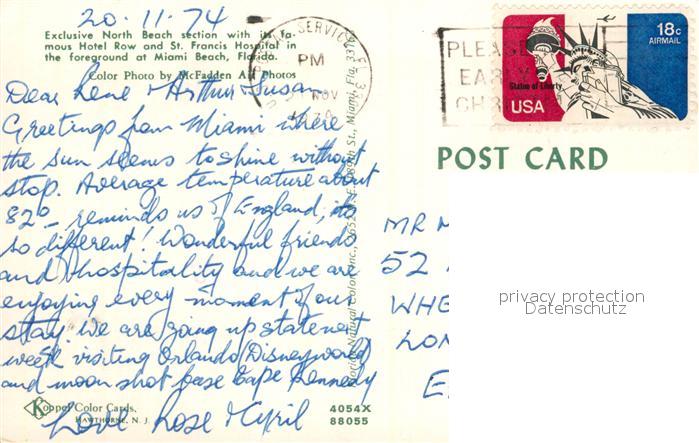 20·11·74
Exclusive North Beach section with its fa-
mous Hotel Row and St. Francis Hospital in
the foreground at Miami Beach, Florida.
Color Photo by McFadden Air Photos
Dear Lene & Arthur Susan
Greetings from Miami where
the sun seems to shine without
stop. Average temperature about
82° – reminds us of England, its
so different! Wonderful friends
and hospitality and we are
enjoying every moment of our
stay. We are going up state next
week visiting Orlando (Disneyworld)
and moon shot base Cape Kennedy
Love Rose & Cyril
Koppel Color Cards
HAWTHORNE, N. J.
4054X
88055
Natural Color Inc., St., Miami, Fla.
SERVICE, FL
PM
NOV
PLEASE
EARLY
CHRIS
18c
AIRMAIL
Statue of Liberty
USA
POST CARD
MR M
52
WHE
LON
E
privacy protection
Datenschutz